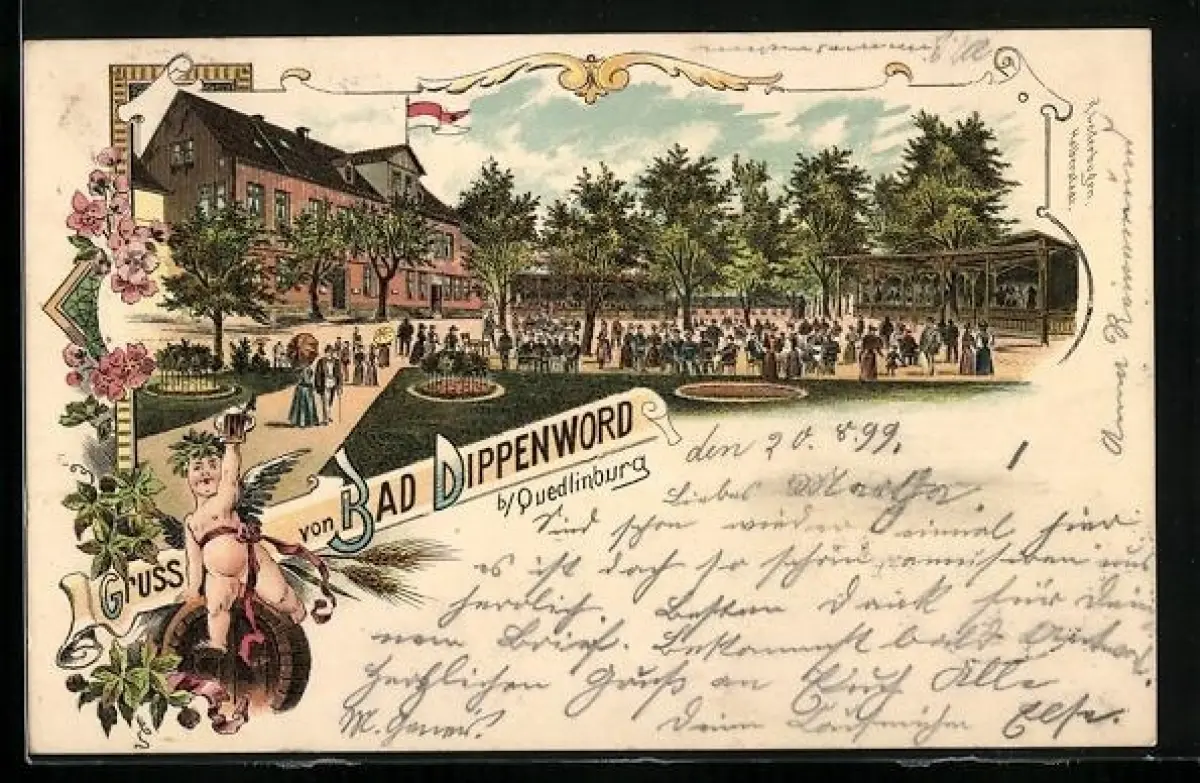 Gruss
von Bad Dippenword
b/Quedlinburg
den 20. 8. 99.
Liebes Martha
Sind schon wieder einmal hier
es ist doch so schön, amüsieren uns
herrlich. Besten Dank für Dei
nen Brief. Bekommst bald Antwort.
Herzlichen Gruß an Euch Alle
Deine
Else.
M.
Anna